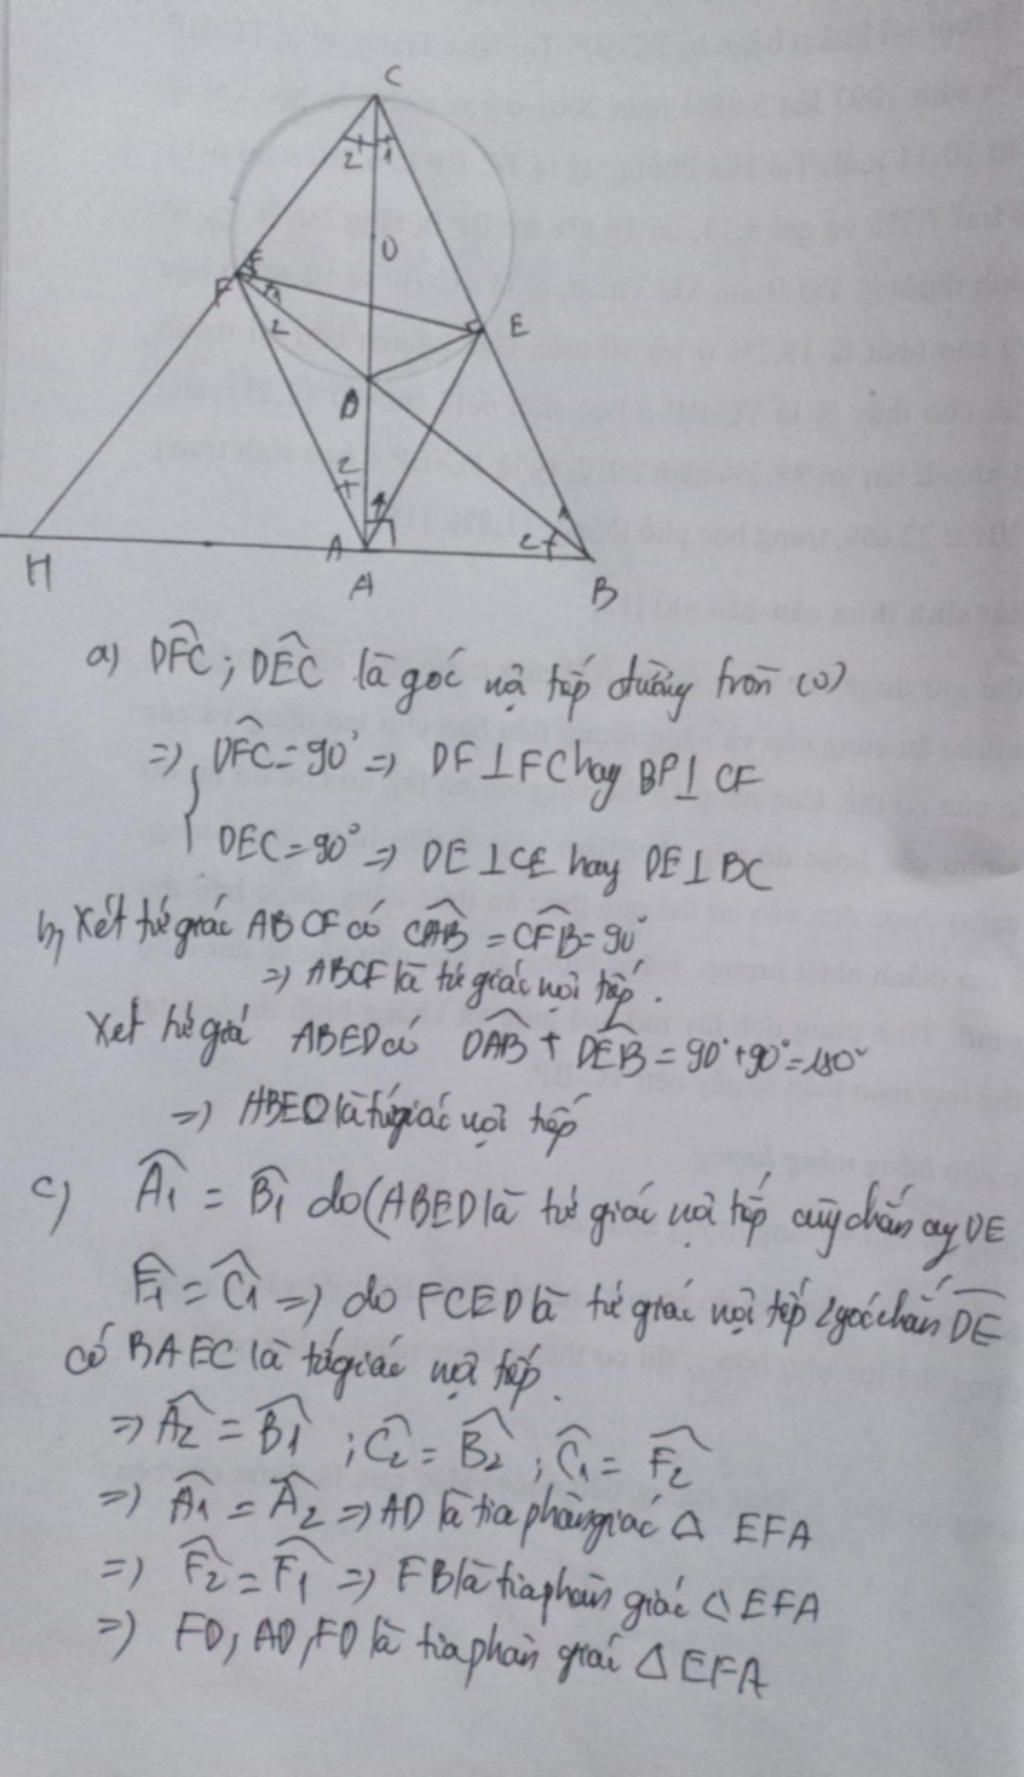 C
2 1
O
F
F
1
2
E
D
2
1
1
2
A
H
A
B
a) DFC ; DEC là góc nội tiếp đường tròn (O)
=> DFC = 90° => DF ⊥ FC hay BF ⊥ CF
DEC = 90° => DE ⊥ CE hay DE ⊥ BC
b, Xét tứ giác ABCF có CAB = CFB = 90°
=> ABCF là tứ giác nội tiếp.
Xét tứ giá ABED có DAB + DEB = 90° + 90° = 180°
=> ABED là tứ giác nội tiếp
c) A1 = B1 do (ABED là tứ giác nội tiếp cùng chắn cug DE
F1 = C1 => do FCED là tứ giác nội tiếp 2 góc chắn DE
có BAFC là tứ giác nội tiếp.
=> A2 = B1 ; C2 = B2 ; C1 = F2
=> A1 = A2 => AD là tia phân giác Δ EFA
=> F2 = F1 => FB là tia phân giác Δ EFA
=> FD, AD, FD là tia phân giác Δ EFA